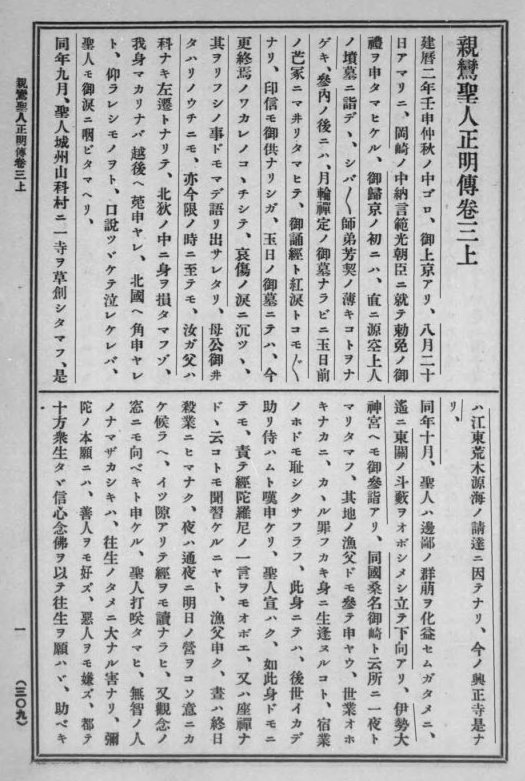 親鸞聖人正明傳卷三上
建曆二年壬申仲秋ノ中ゴロ、御上京アリ、八月二十
日アマリニ、岡崎ノ中納言範光朝臣ニ就テ勅免ノ御
禮ヲ申タマヒケル、御歸京ノ初ニハ、直ニ源空上人
ノ墳墓ニ詣デヽ、シバ〳〵師弟芳契ノ薄キコトヲナ
ゲキ、參內ノ後ニハ、月輪禪定ノ御墓ナラビニ玉日前
ノ芒冢ニマ井リタマヒテ、御誦經ト紅淚トコモ〴〵
ナリ、印信モ御供ナリシガ、玉日ノ御墓ニテハ、今
更終焉ノワカレノコヽチシテ、哀傷ノ淚ニ沉ツヽ、
其ヲリフシノ事ドモマデ語リ出サレタリ、母公御井
タハリノウチニモ、亦今限ノ時ニ至テモ、汝ガ父ハ
科ナキ左遷トナリテ、北狄ノ中ニ身ヲ損タマフゾ、
我身マカリナバ越後ヘ菟申ヤレ、北國ヘ角申ヤレ
ト、仰ラレシモノヲト、口說ツヾケテ泣レケレバ、
聖人モ御淚ニ咽ビタマヘリ、
同年九月、聖人城州山科村ニ一寺ヲ草創シタマフ、是
ハ江東荒木源海ノ請達ニ因テナリ、今ノ興正寺是ナ
リ、
同年十月、聖人ハ邊鄙ノ群萠ヲ化益セムガタメニ、
遙ニ東關ノ斗藪ヲオボシメシ立テ下向アリ、伊勢大
神宮ヘモ御參詣アリ、同國桑名御崎ト云所ニ一夜ト
マリタマフ、其地ノ漁父ドモ參テ申ヤウ、世業オホ
キナカニ、カヽル罪フカキ身ニ生逢ヌルコト、宿業
ノホドモ耻シクサフラフ、此身ニテハ、後世イカデ
助リ侍ハムト嘆申ケリ、聖人宣ハク、如此身ドモニ
テモ、責テ經陀羅尼ノ一言ヲモオボエ、又ハ座禪ナ
ドヽ云コトモ聞習ケルニヤト、漁父申ク、晝ハ終日
殺業ニヒマナク、夜ハ通夜ニ明日ノ營ヲコソ意ニカ
ケ候ラヘ、イツ隙アリテ經ヲモ讀ナラヒ、又觀念ノ
窓ニモ向ベキト申ケル、聖人打咲タマヒ、無智ノ人
ノナマザカシキハ、往生ノタメニ大ナル害ナリ、彌
陀ノ本願ニハ、善人ヲモ好ズ、惡人ヲモ嫌ズ、都テ
十方衆生タヾ信心念佛ヲ以テ往生ヲ願ハヾ、助ベキ
親鸞聖人正明傳卷三上
一
(三〇九)